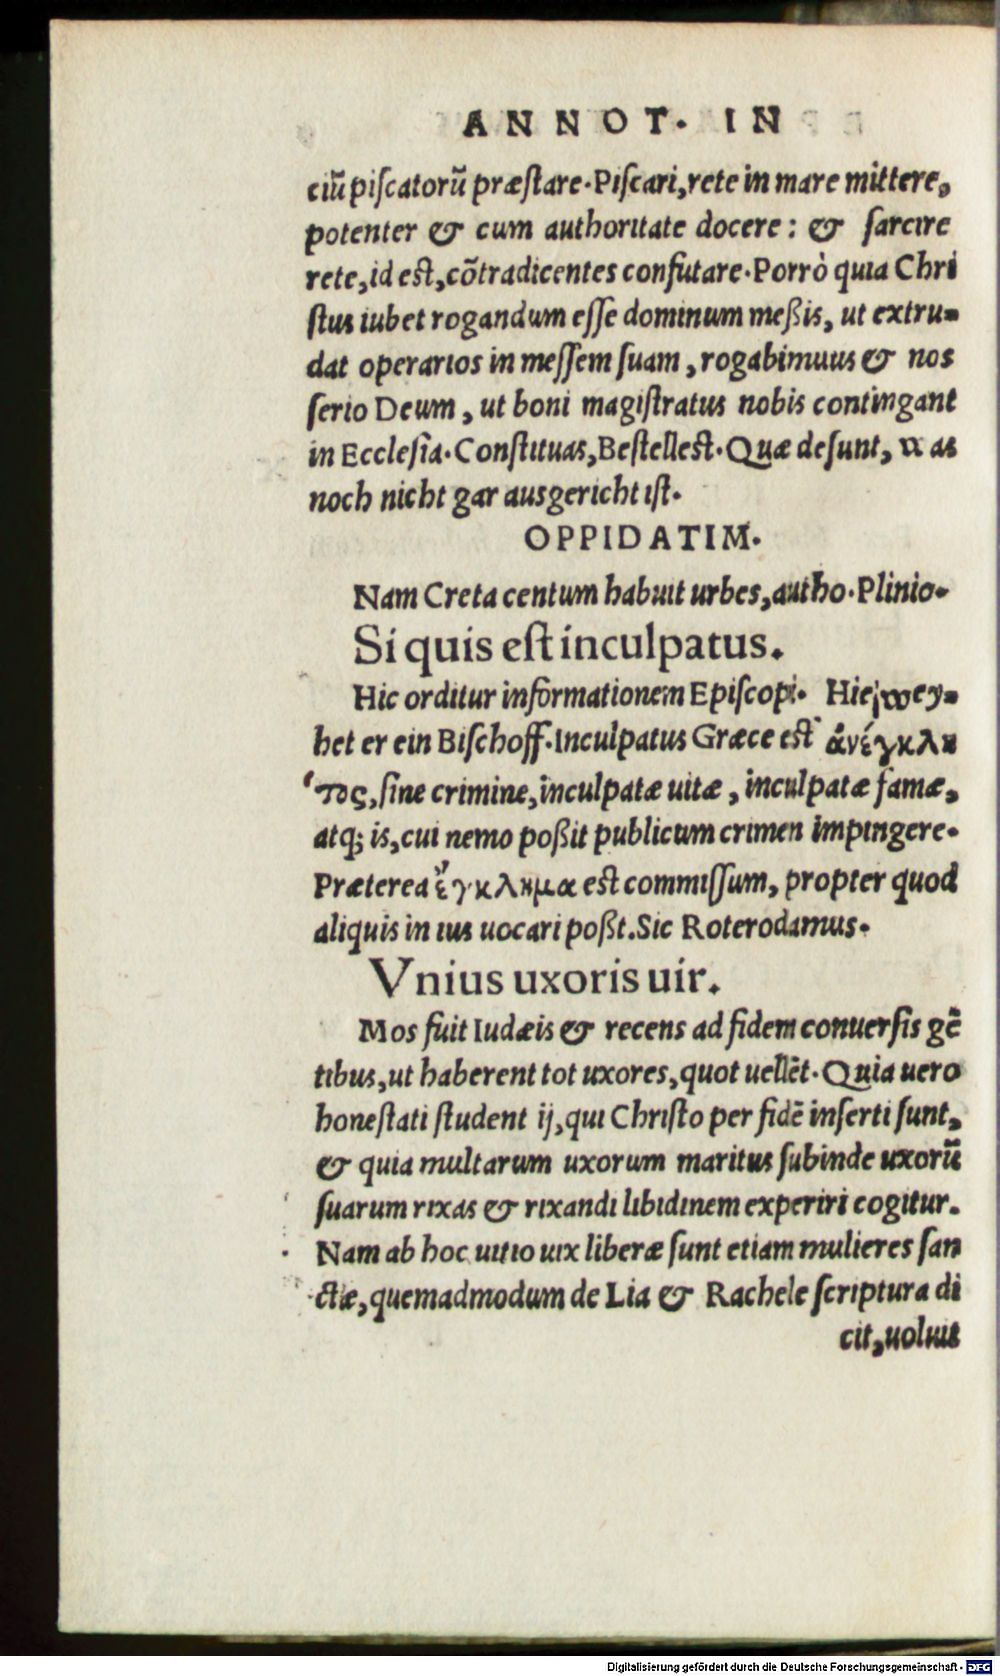 ANNOT. IN
ciũ piſcatorũ præſtare. Piſcari, rete in mare mittere,
potenter & cum authoritate docere: & ſarcire
rete, id eſt, cõtradicentes confutare. Porrò quia Chri
ſtus iubet rogandum eſſe dominum meßis, ut extru-
dat operarios in meſſem ſuam, rogabimuus & nos
ſerio Deum, ut boni magiſtratus nobis contingant
in Eccleſia. Conſtituas, Beſtelleſt. Quæ deſunt, as
noch nicht gar ausgericht iſt.
OPPIDATIM.
Nam Creta centum habuit urbes, autho. Plinio.
Si quis eſt inculpatus.
Hic orditur informationem Epiſcopi. Hie wey-
het er ein Biſchoff. Inculpatus Græce eſt ἀνέγκλη
τος, ſine crimine, inculpatæ uitæ, inculpatæ famæ,
atq; is, cui nemo poßit publicum crimen impingere.
Præterea ἔγκλημα eſt commiſſum, propter quod
aliquis in ius uocari poßt. Sic Roterodamus.
Vnius uxoris uir.
Mos fuit Iudæis & recens ad fidem conuerſis gẽ
tibus, ut haberent tot uxores, quot uellẽt. Quia uero
honeſtati ſtudent ij, qui Chriſto per fidẽ inſerti ſunt,
& quia multarum uxorum maritus ſubinde uxorũ
ſuarum rixas & rixandi libidinem experiri cogitur.
Nam ab hoc uitio uix liberæ ſunt etiam mulieres ſan
ctæ, quemadmodum de Lia & Rachele ſcriptura di
cit, uoluit
Digitalisierung gefördert durch die Deutsche Forschungsgemeinschaft - DFG